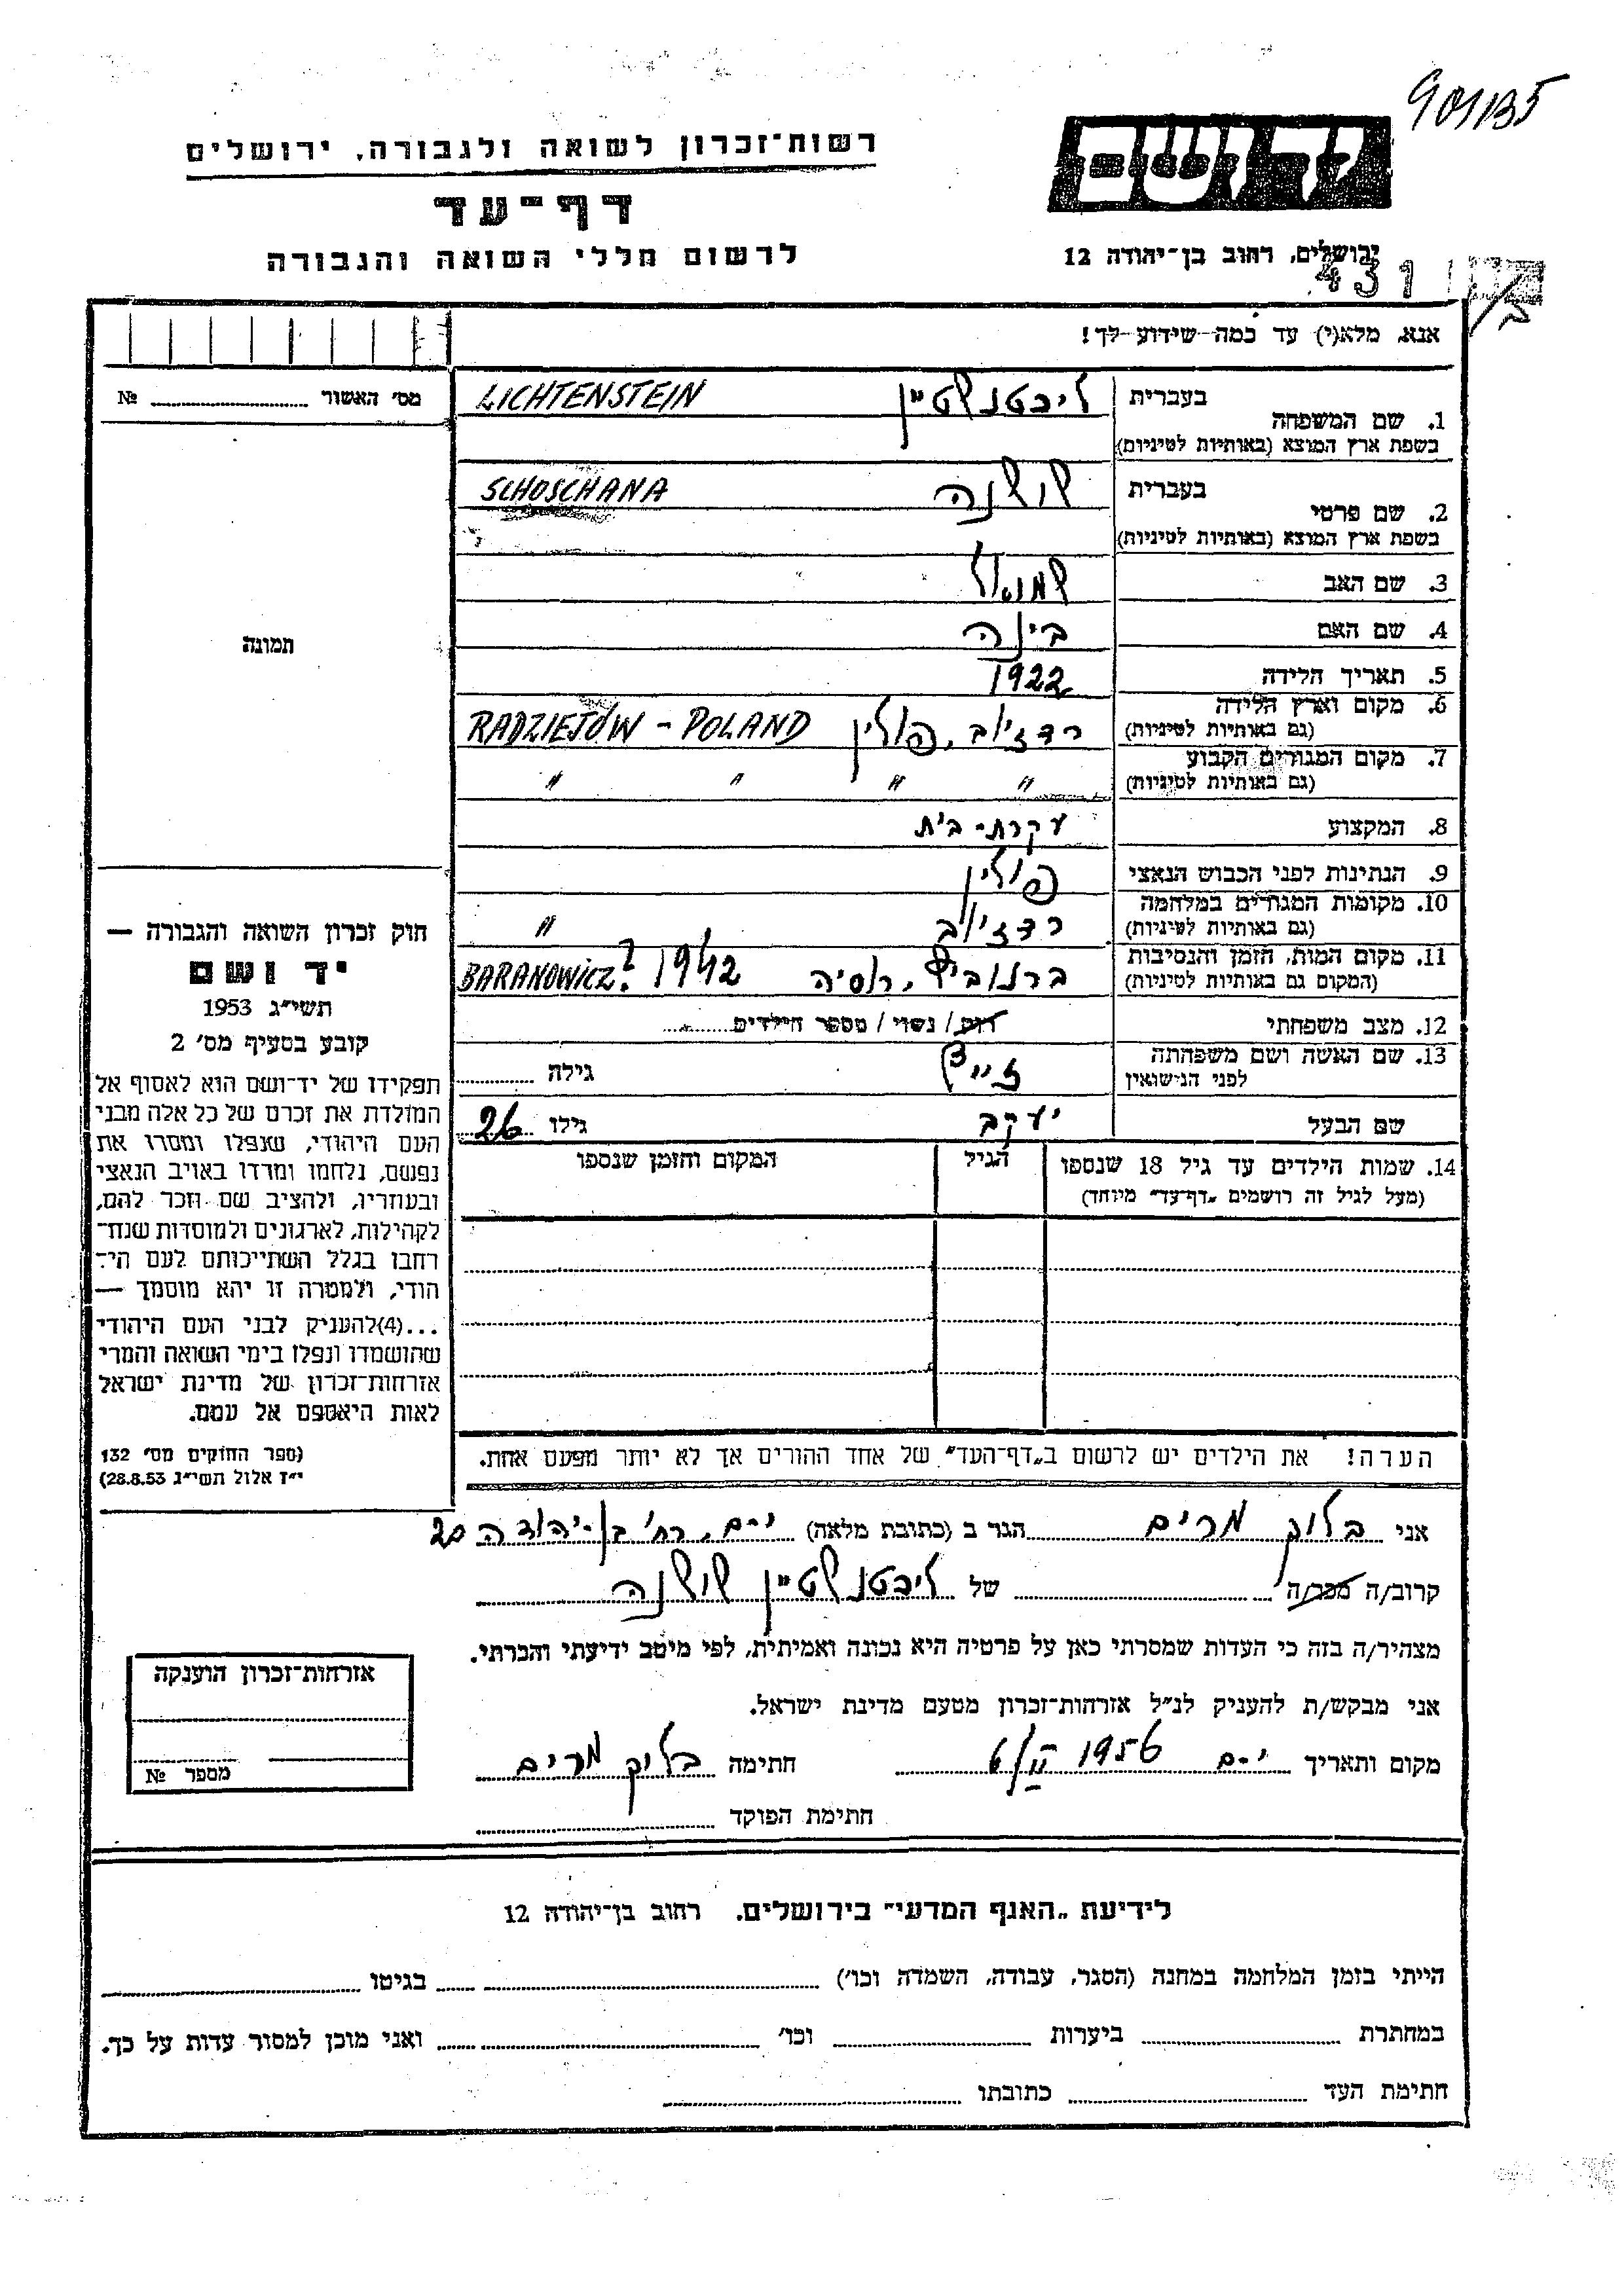 901135
רשות־זכרון לשואה ולגבורה, ירושלים
דף־עד
לרשום חללי השואה והגבורה
יד ושם
ירושלים, רחוב בן־יהודה 12
431
אנא, מלא(י) עד כמה שידוע לך!
מס' האשור № 
1. שם המשפחה בעברית ליכטנשטיין LICHTENSTEIN
בשפת ארץ המוצא (באותיות לטיניות)
2. שם פרטי בעברית שושנה SCHOSCHANA
בשפת ארץ המוצא (באותיות לטיניות)
3. שם האב שמואל
4. שם האם בינה
5. תאריך הלידה 1922
6. מקום וארץ הלידה רדזיוב, פולין RADZIEJÓW - POLAND
(גם באותיות לטיניות)
7. מקום המגורים הקבוע " " " "
(גם באותיות לטיניות)
8. המקצוע עקרת-בית
9. הנתינות לפני הכבוש הנאצי פולין
10. מקומות המגורים במלחמה רדזיוב "
(גם באותיות לטיניות)
11. מקום המות, הזמן והנסיבות ברנוביץ, רוסיה 1942 BARANOWICZ?
(המקום גם באותיות לטיניות)
12. מצב משפחתי רווק / נשוי / מספר הילדים
13. שם האשה ושם משפחתה לפני הנישואין זייף גילה
שם הבעל יעקב גילו 26
14. שמות הילדים עד גיל 18 שנספו הגיל המקום והזמן שנספו
(מעל לגיל זה רושמים „דף־עד" מיוחד)
תמונה
חוק זכרון השואה והגבורה —
יד ושם
תשי"ג 1953
קובע בסעיף מס' 2
תפקידו של יד־ושם הוא לאסוף אל
המולדת את זכרם של כל אלה מבני
העם היהודי, שנפלו ומסרו את
נפשם, נלחמו ומרדו באויב הנאצי
ובעוזריו, ולהציב שם וזכר להם,
לקהילות, לארגונים ולמוסדות שנח־
רבו בגלל השתייכותם לעם הי־
הודי, ולמטרה זו יהא מוסמך —
...(4)להעניק לבני העם היהודי
שהושמדו ונפלו בימי השואה והמרי
אזרחות־זכרון של מדינת ישראל
לאות היאספם אל עמם.
(ספר החוקים מס' 132
י"ז אלול תשי"ג 28.8.53)
הערה! את הילדים יש לרשום ב„דף־העד" של אחד ההורים אך לא יותר מפעם אחת.
אני בלוק מרים הגר ב (כתובת מלאה) י-ם, רח' בן-יהודה 20
קרוב/ה מכר/ה של ליכטנשטיין שושנה
מצהיר/ה בזה כי העדות שמסרתי כאן על פרטיה היא נכונה ואמיתית, לפי מיטב ידיעתי והכרתי.
אני מבקש/ת להעניק לנ"ל אזרחות־זכרון מטעם מדינת ישראל.
מקום ותאריך י-ם 6/II 1956 חתימה בלוק מרים
חתימת הפוקד
אזרחות־זכרון הוענקה
מספר №
לידיעת „האגף המדעי" בירושלים, רחוב בן־יהודה 12
הייתי בזמן המלחמה במחנה (הסגר, עבודה, השמדה וכו') בגיטו
במחתרת ביערות וכו' ואני מוכן למסור עדות על כך.
חתימת העד כתובתו